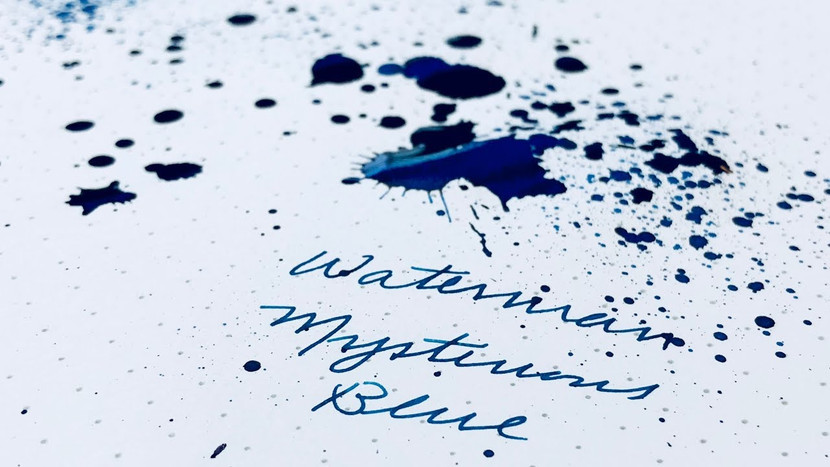 Waterman
Mysterious
Blue